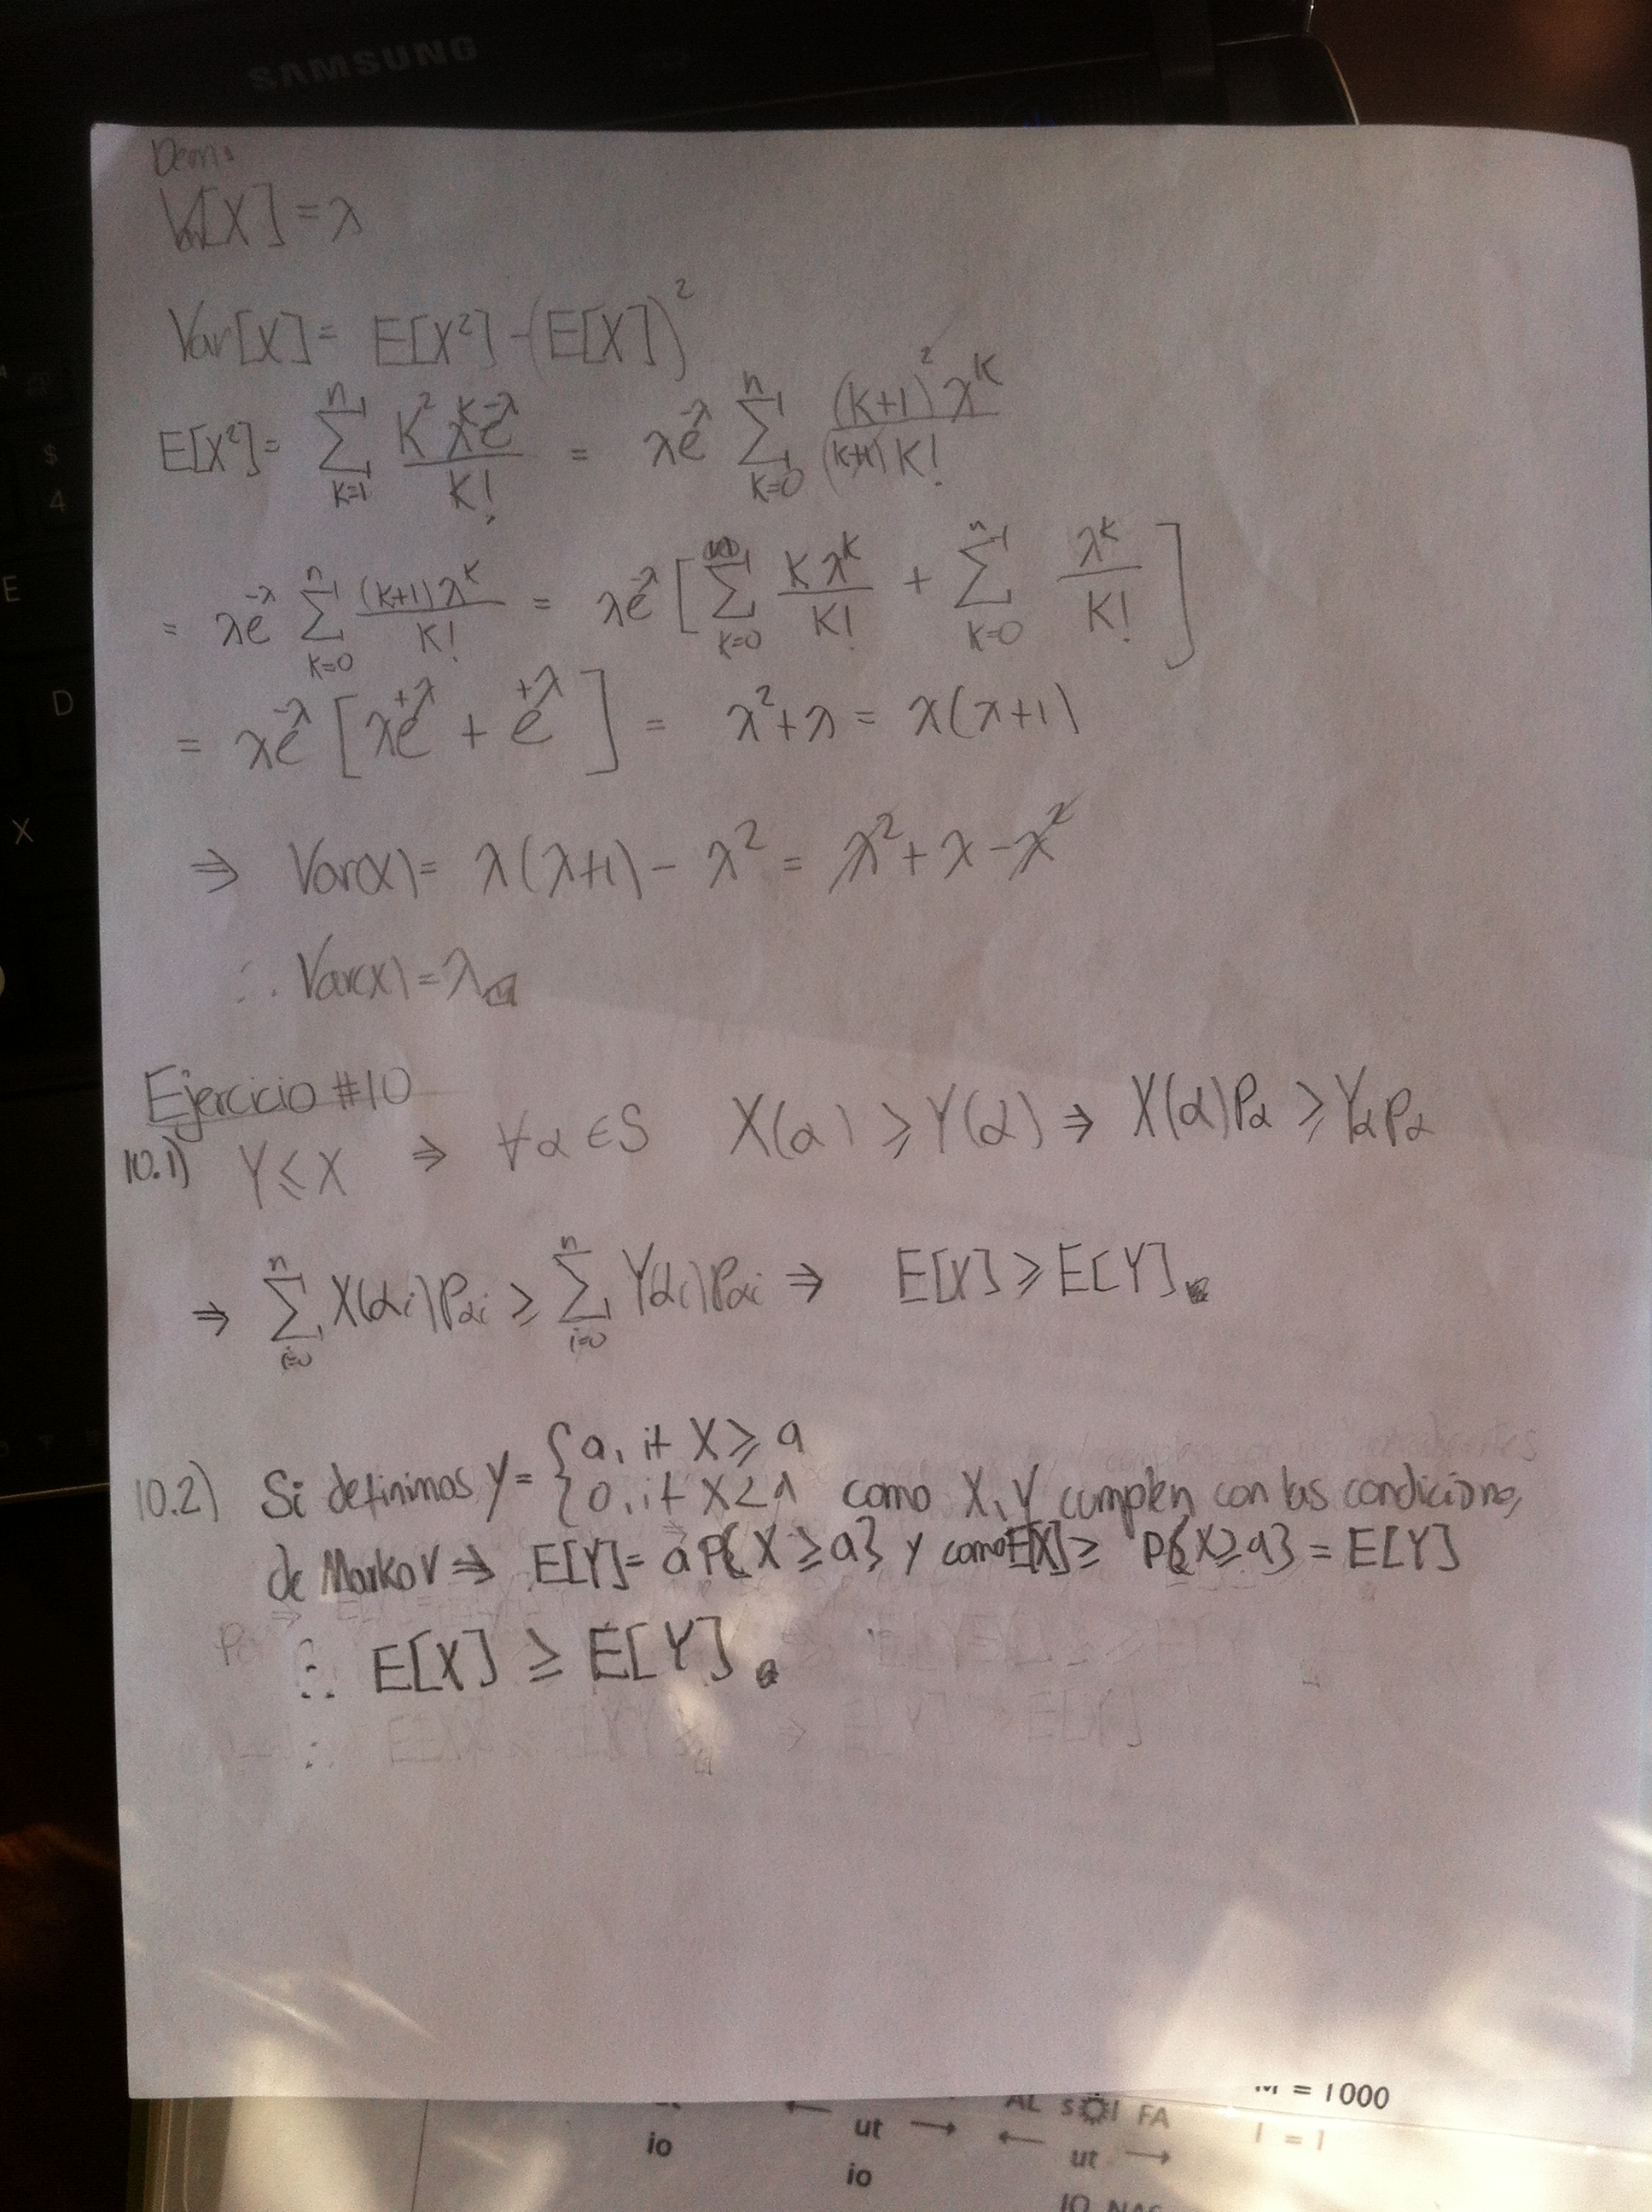 SAMSUNG
Dem:
Var[X] = λ
Var[X] = E[X²] - (E[X])²
E[X²] = Σ_{K=1}^{n} K² λ^K e^{-λ} / K! = λe^{-λ} Σ_{K=0}^{n} (K+1)² λ^K / (K+1) K!
= λe^{-λ} Σ_{K=0}^{n} (K+1) λ^K / K! = λe^{-λ} [ Σ_{K=0} K λ^K / K! + Σ_{K=0}^{n} λ^K / K! ]
= λe^{-λ} [ λe^{+λ} + e^{+λ} ] = λ² + λ = λ(λ+1)
⇒ Var(X) = λ(λ+1) - λ² = λ² + λ - λ²
∴ Var(X) = λ
Ejercicio #10
10.1) Y ≤ X ⇒ ∀α ∈ S X(α) ≥ Y(α) ⇒ X(α)Pα ≥ YαPα
⇒ Σ_{i=0}^{n} X(αi)Pαi ≥ Σ_{i=0}^{n} Y(αi)Pαi ⇒ E[X] ≥ E[Y]
10.2) Si definimos Y = { a, if X ≥ a
{ 0, if X < a como X, Y cumplen con las condiciones
de Markov ⇒ E[Y] = a P{X ≥ a} y como E[X] ≥ P{X ≥ a} = E[Y]
∴ E[X] ≥ E[Y]
$
4
E
D
X
= 1000
AL sol FA
1 = 1
ut
io
ut
io